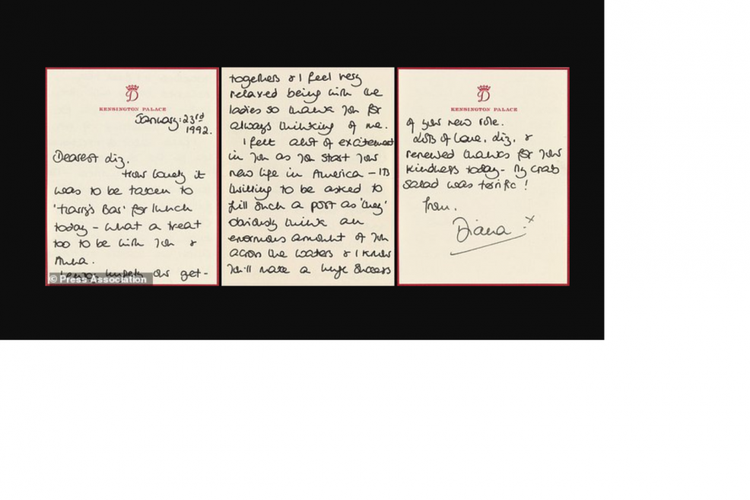 D
KENSINGTON PALACE
January: 23rd
1992.
Dearest Liz,
How lovely it
was to be taken to
'Harry's Bar' for lunch
today - what a treat
too to be with you &
our get-
© Press Association
togethers & I feel very
relaxed being with the
ladies so thank you for
always thinking of me.
I felt alot of excitement
in you as you start your
new life in America - its
thrilling to be asked to
fill such a post as 'they'
obviously think an
enormous amount of you
across the waters & I know
you'll make a huge success
D
KENSINGTON PALACE
of your new role.
Lots of love, Liz, &
renewed thanks for your
kindness today - my crab
salad was terrific!
from,
Diana. x